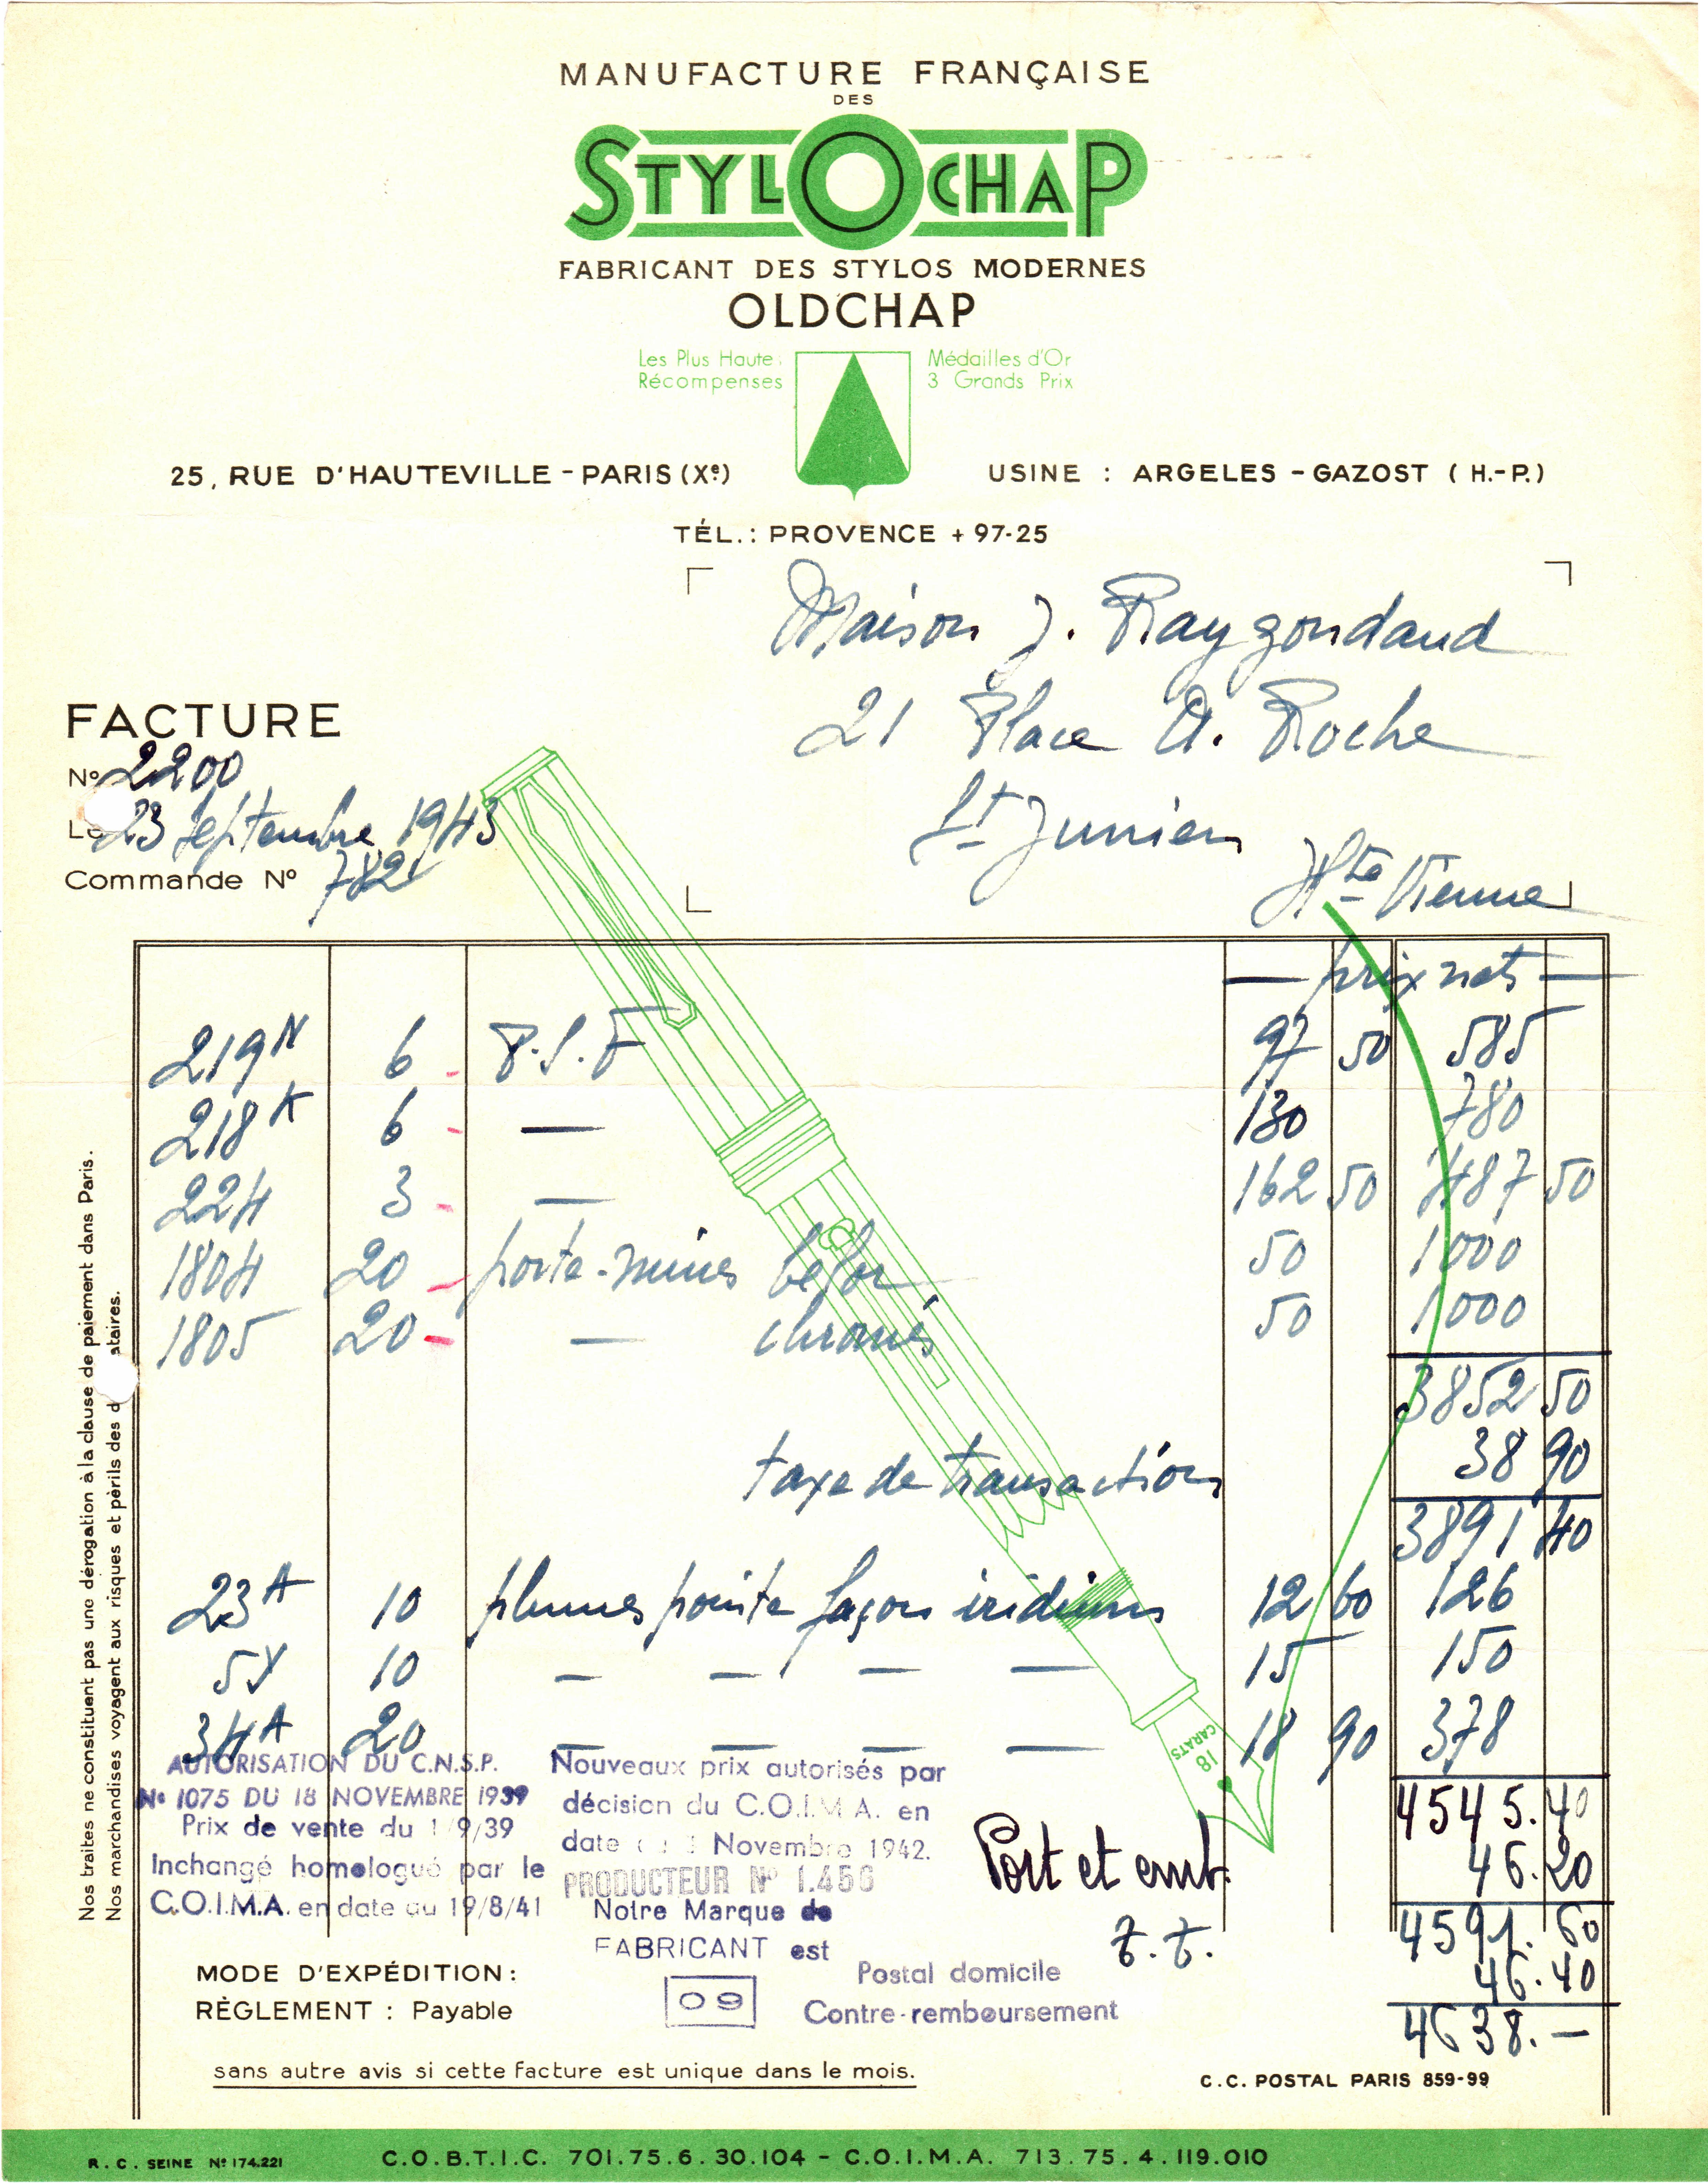 MANUFACTURE FRANÇAISE
DES
STYLOCHAP
FABRICANT DES STYLOS MODERNES
OLDCHAP
Les Plus Hautes Récompenses
Médailles d'Or
3 Grands Prix
25, RUE D'HAUTEVILLE - PARIS (Xe)
USINE : ARGELES - GAZOST ( H.-P.)
TÉL. : PROVENCE + 97-25
Maison J. Raygondaud
21 Place A. Roche
St Junien
Hte Vienne
FACTURE
No 2200
Le 23 Septembre 1943
Commande No 782
— prix nets —
219 N 6 P.S.F 97 50 585
218 K 6 — 130 780
224 3 — 162 50 487 50
1804 20 porte-mines 50 1000
1805 20 — chromés 50 1000
3852 50
taxe de transaction 38 90
3891 40
23 A 10 plumes pointe façon iridium 12 60 126
5Y 10 — — — — 15 150
34 A 20 — — — — 18 90 378
18 CARATS
4545.40
Port et emb. 46.20
4591.60
t.t. 46.40
4638.—
AUTORISATION DU C.N.S.P.
No 1075 DU 18 NOVEMBRE 1939
Prix de vente du 1/9/39
Inchangé homologué par le
C.O.I.M.A. en date du 19/8/41
Nouveaux prix autorisés par
décision du C.O.I.M.A. en
date Novembre 1942.
PRODUCTEUR No 1.456
Notre Marque de
FABRICANT est
09
Postal domicile
Contre-remboursement
MODE D'EXPÉDITION :
RÈGLEMENT : Payable
sans autre avis si cette facture est unique dans le mois.
C.C. POSTAL PARIS 859-99
Nos traites ne constituent pas une dérogation à la clause de paiement dans Paris.
Nos marchandises voyagent aux risques et périls des d ataires.
R.C. SEINE No 174.221
C.O.B.T.I.C. 701.75.6.30.104 - C.O.I.M.A. 713.75.4.119.010